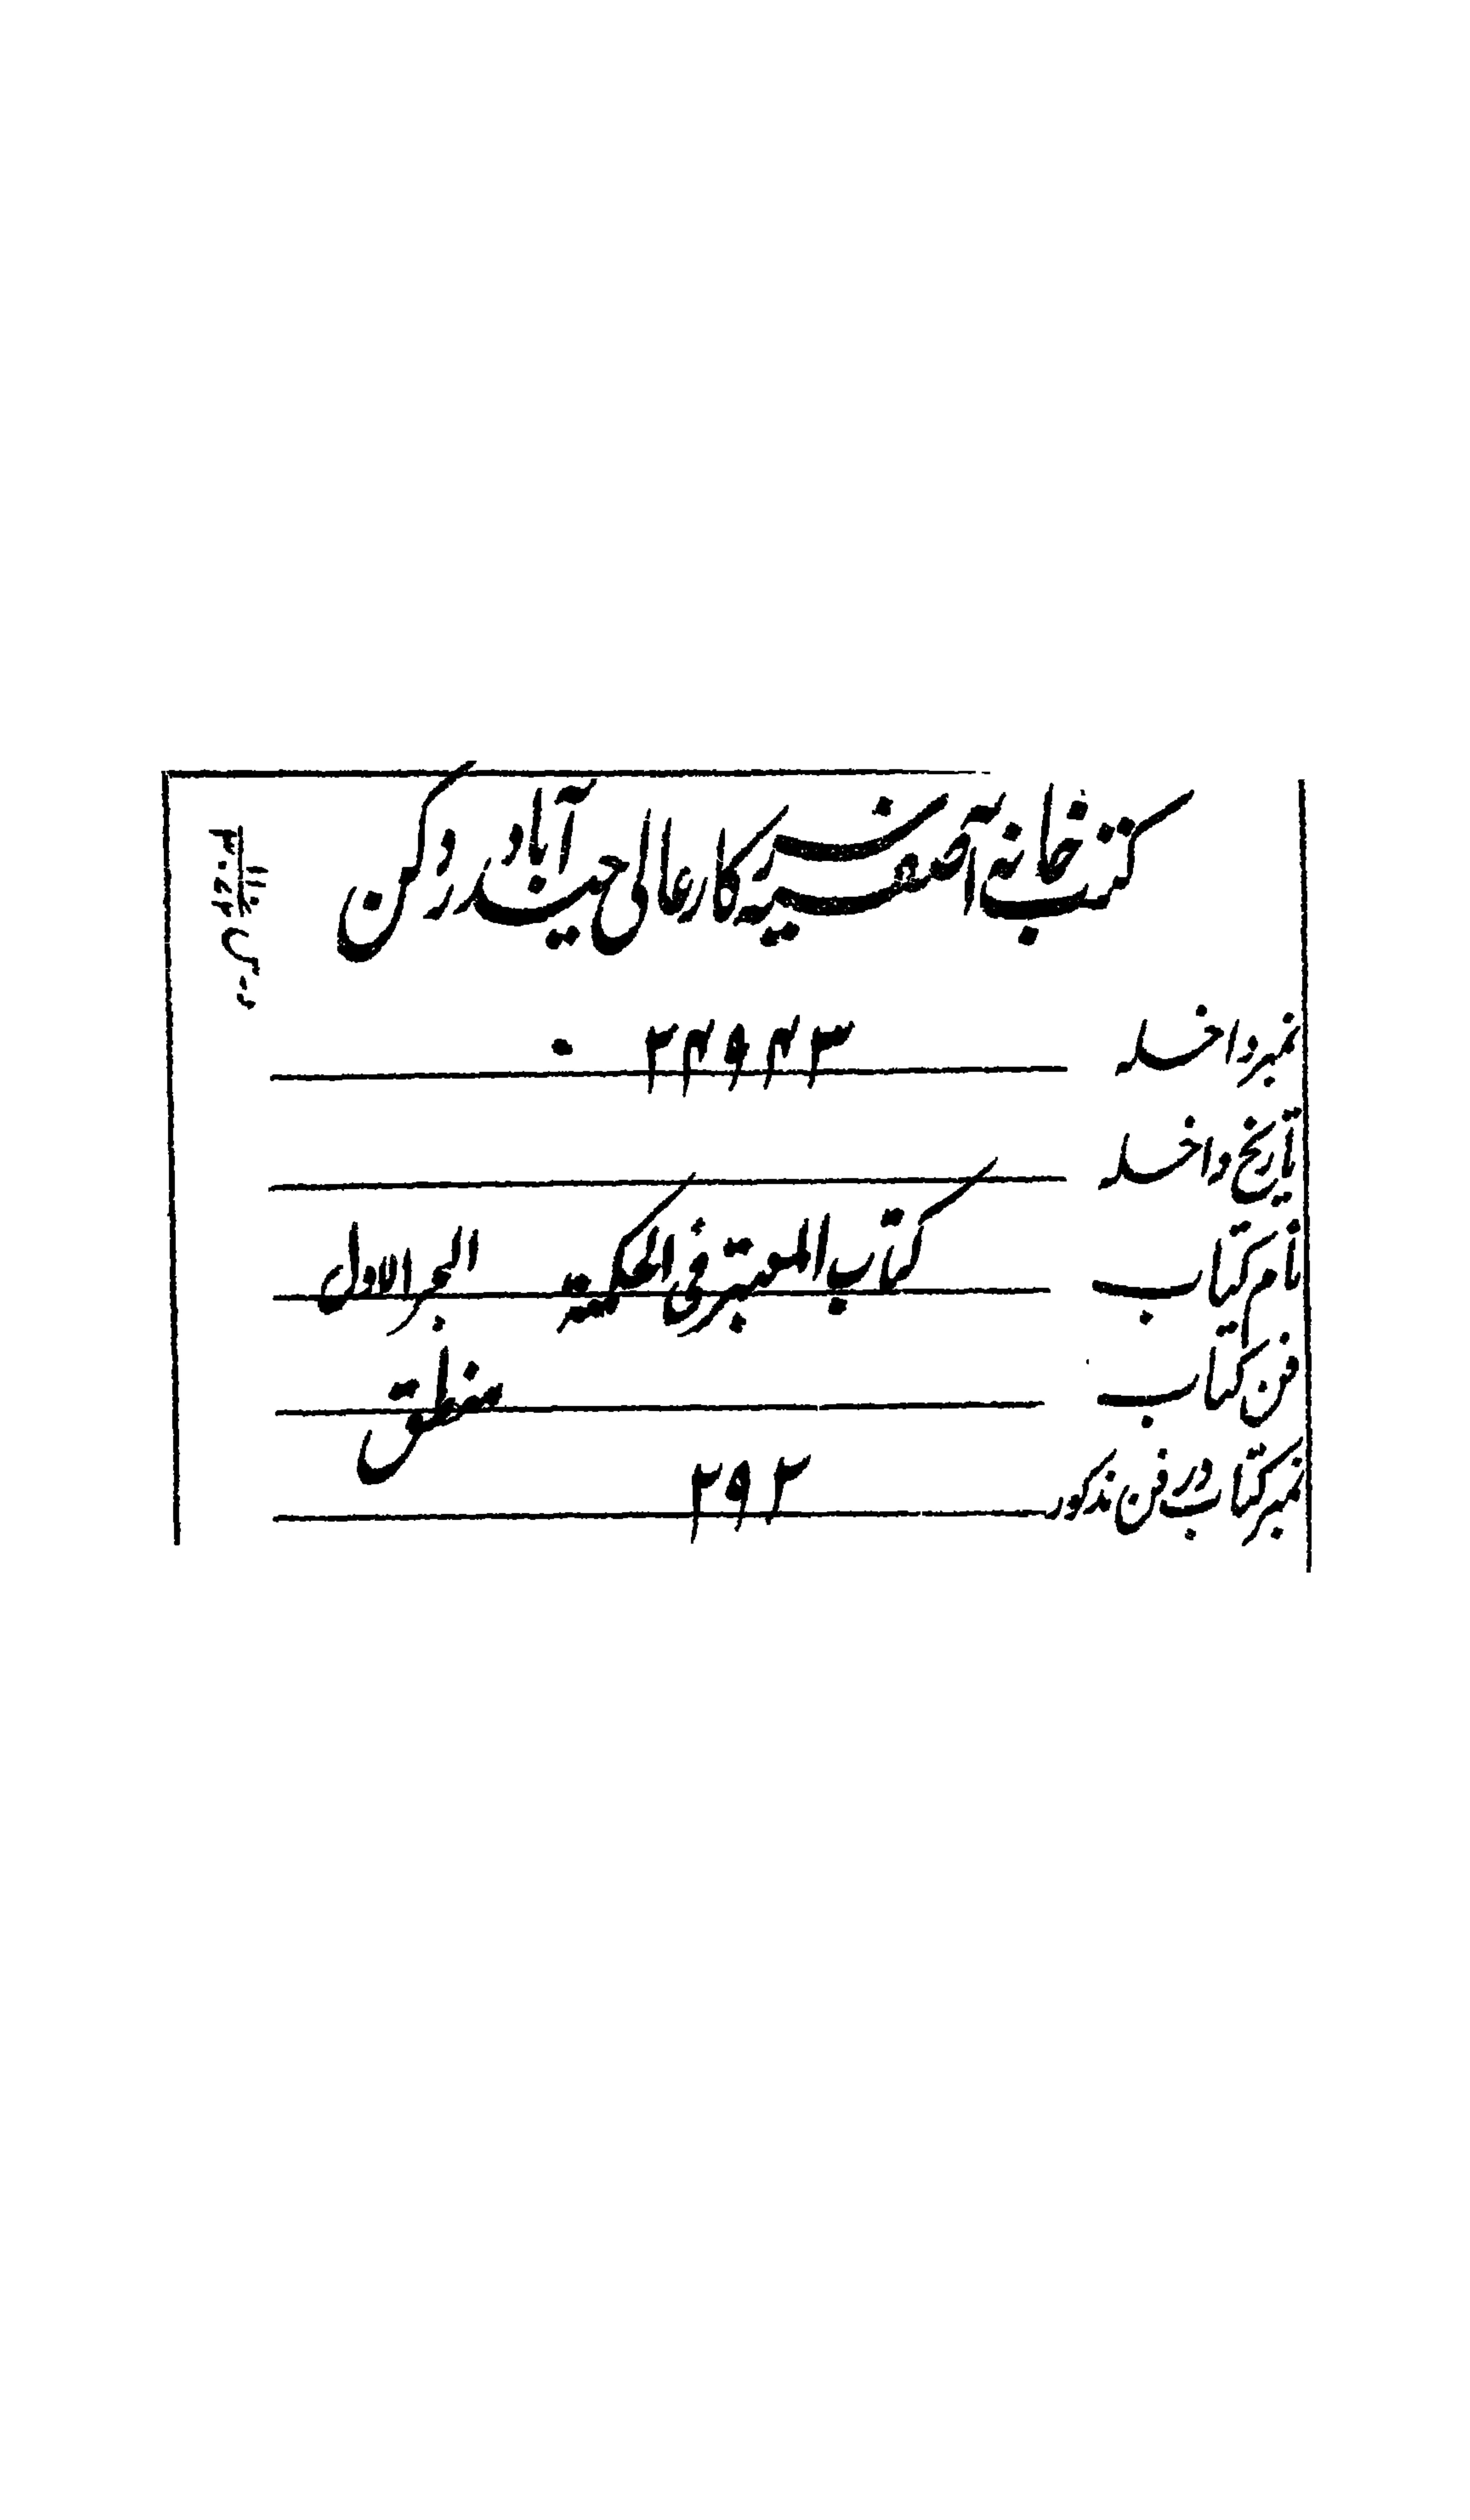 کتب خانہ آصفیہ سرکار عالی حیدرآباد دکن
نمبر داخلہ ۳۲۹۴۳
تاریخ داخلہ
نام کتاب کتاب المعتبر فی الحکمہ الجزء الاول
فن کتاب منطق
نمبر کتاب در فن مذکور ۲۹۲